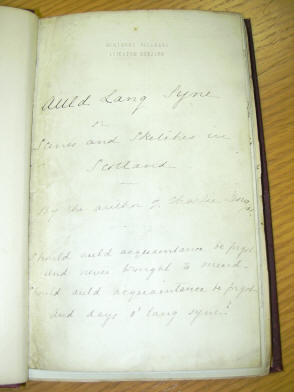 Auld Lang Syne
or
Scenes and Sketches in
Scotland
By the author of Charlie
Should auld acquaintance be forgot
and never brought to mind
Should auld acquaintance be forgot
and days o' lang syne?